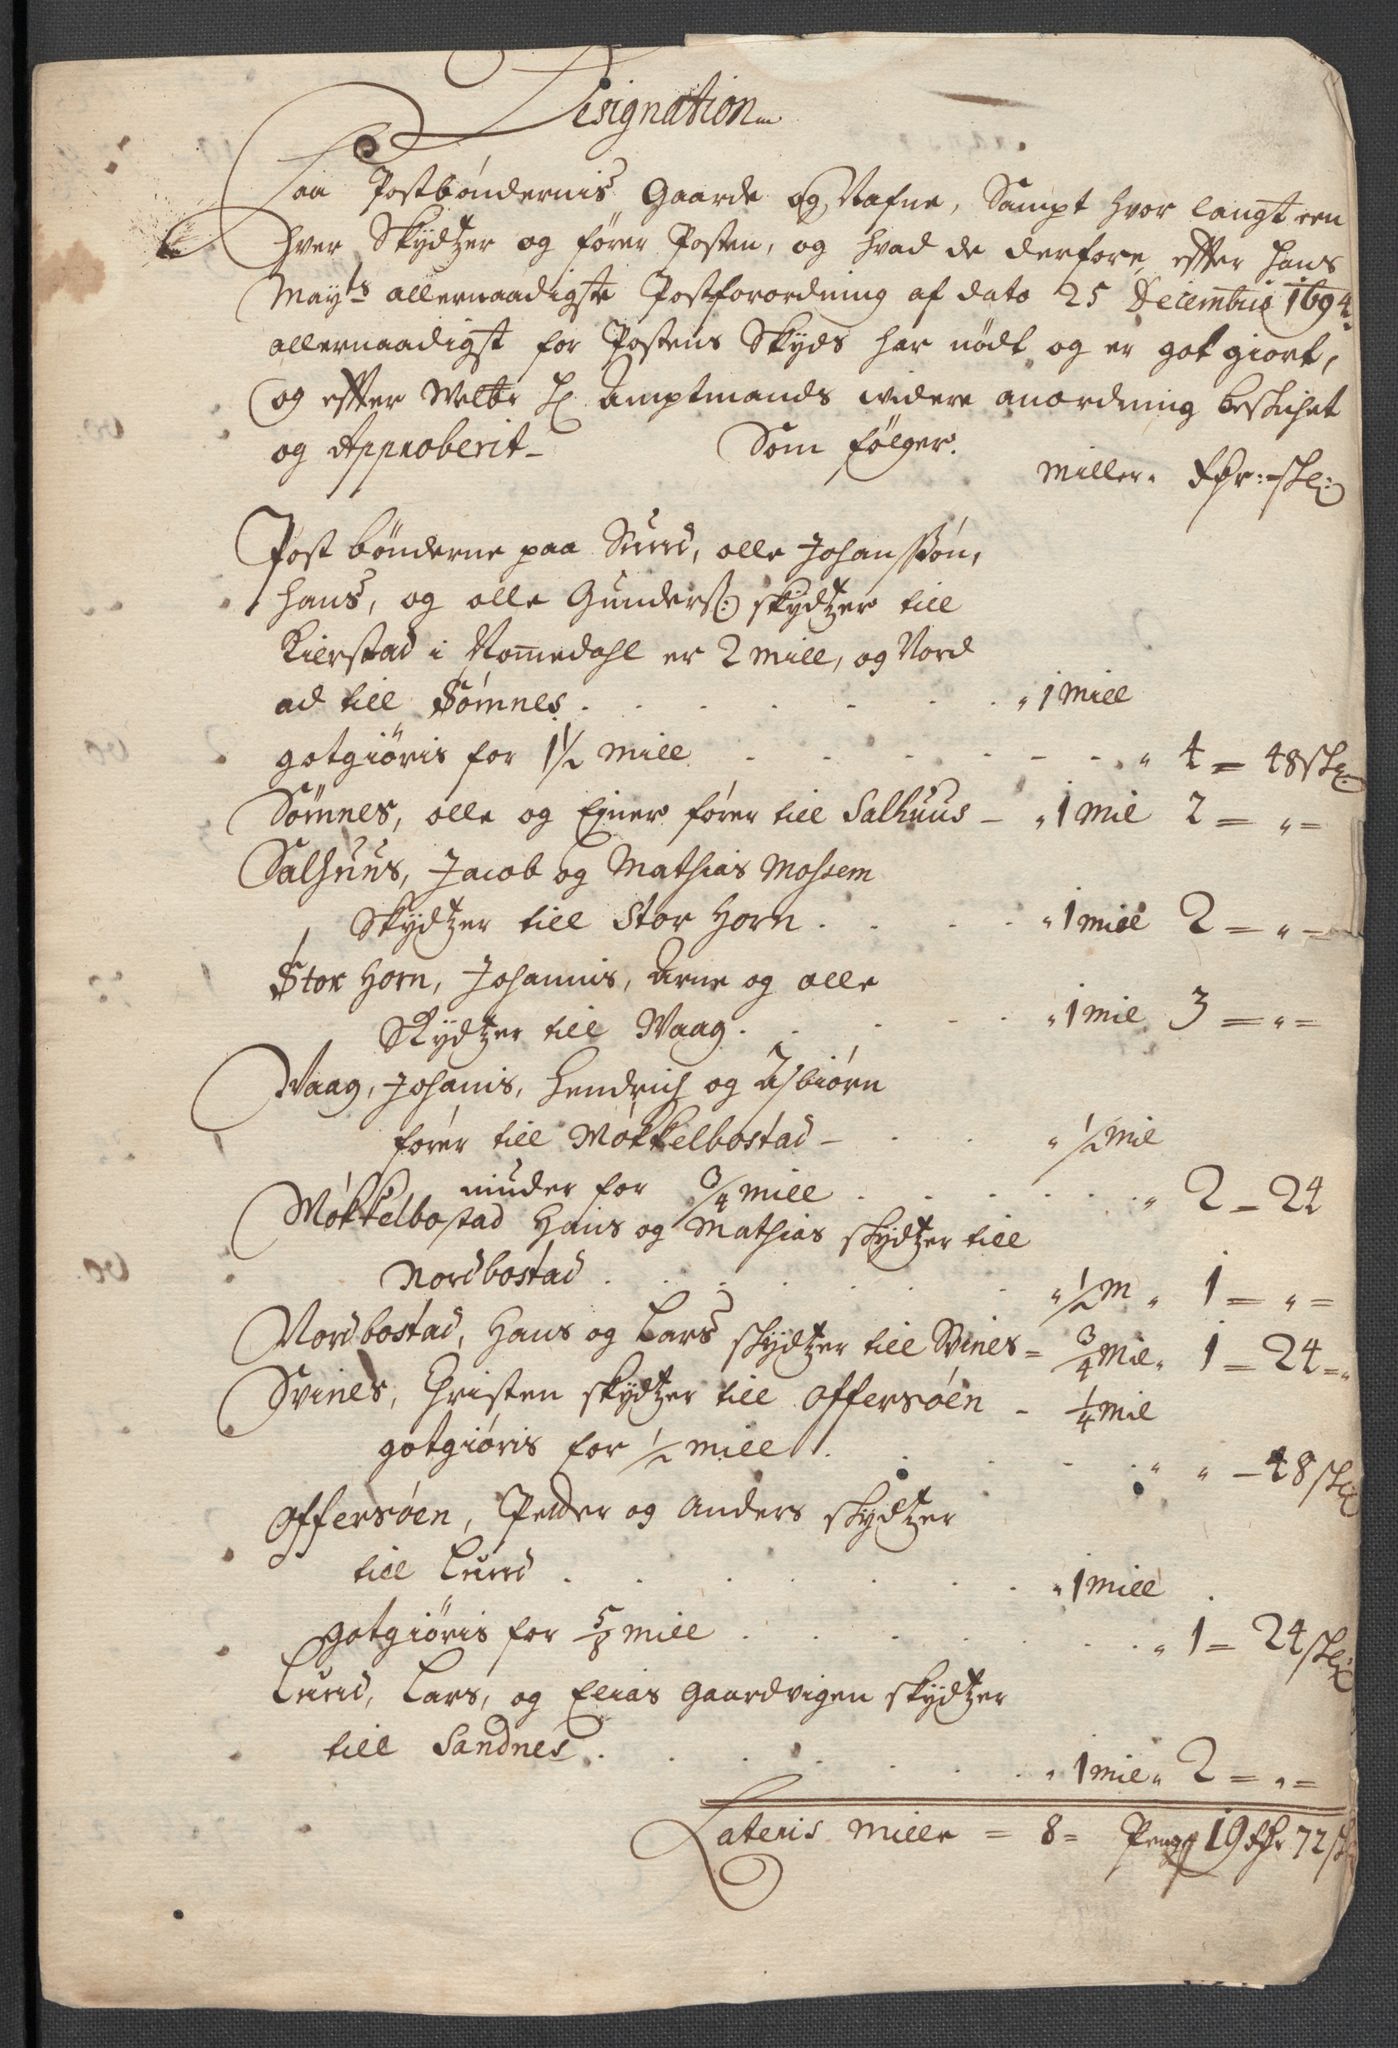 Designation
Paa Postböndernis Gaarde og Nafne, Sampt hvor langt een
hver Skydtzer og förer Posten, og hvad de derfore, effter Hans
Mayts allernaadigste Postforordning af dato 25 Decembris 1694
allernaadigst for Postens Skyds har nödt og er got giort,
og effter Welbr Hr Amptmands widere anordning beskichet
og Approberit Som fölger.
Miller. Rdr: skl:
Post bönderne paa Sund, olle Johanssön,
Hans, og olle Gunderss: skydtzer till
Kierstad i Nommedahl er 2 mill, og Nord
ad till Sömnes . . . . . . . " 1 Mill
gotgiöris for 1½ mill . . . . . . " 4 = 48 skl:
Sömnes, olle og Ejner förer till Salhuus - " 1 Mil 2 = " =
Salhuus, Jacob og Mathias Mossem
Skydtzer till Stor Horn . . . . " 1 mill 2 = " =
Stor Horn, Johannis, Arne og olle
Skydtzer till Waag . . . . . " 1 mil 3 = " =
Waag, Johanis, Hendrich og Asbiörn
förer till Mökkelbostad - . . . " ½ Mil
niuder for ¾ mill . . . . . . " 2 - 24
Mökkelbostad Hans og Mathias skydtzer till
Nordbostad . . . . . . . " ½ M " 1 = " =
Nordbostad, Hans og Lars skydtzer till Svines = ¾ Mil " 1 = 24 = "
Svines, Christen skydtzer till offersöen - ¼ Mil
gotgiöris for ½ mill . . . . . " " - 48 skl
offersöen, Peder og Anders skydtzer
till Lund . . . . . . . " 1 mill .
gotgiöris for 5/8 mill . . . . . . . " 1 = 24 skl:
Lund, Lars, og Elias Gaardvigen skydtzer
till Sandnes . . . . . . . " 1 mil " 2 = " =
Lateris Mille = 8 = Penge 19 Rdr 72 sk